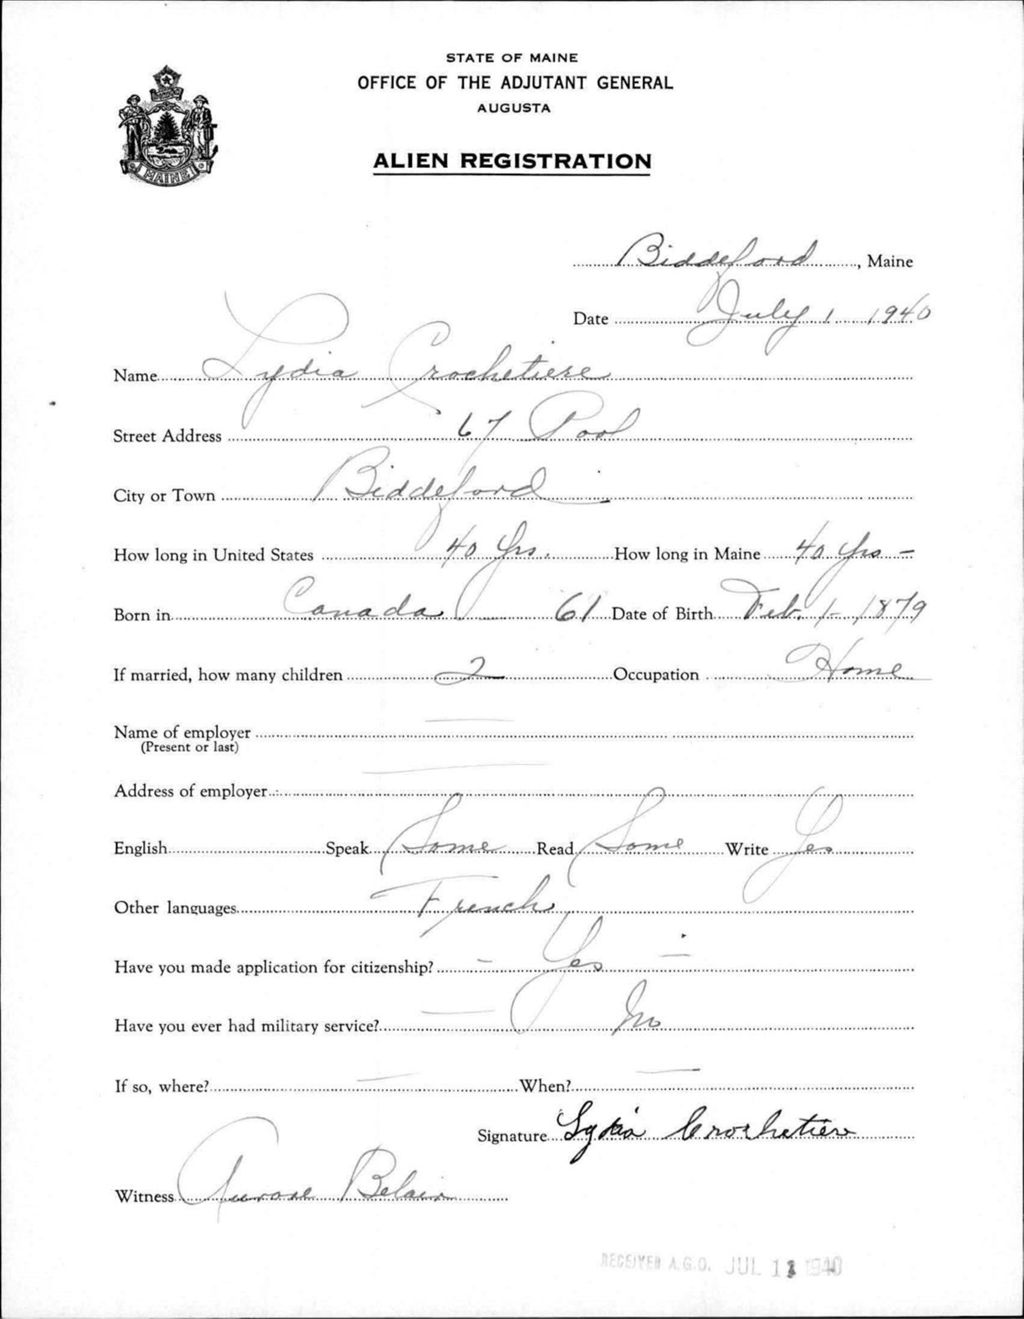 STATE OF MAINE
OFFICE OF THE ADJUTANT GENERAL
AUGUSTA
ALIEN REGISTRATION
MAINE
Biddeford, Maine
Date July 1 1940
Name Lydia Crochetiere
Street Address 67 Pool
City or Town Biddeford
How long in United States 40 Yrs. How long in Maine 40 Yrs -
Born in Canada 61 Date of Birth Feb. 1 - 1879
If married, how many children 2 Occupation Home
Name of employer —
(Present or last)
Address of employer —
English Speak Some Read Some Write Yes
Other languages French
Have you made application for citizenship? - Yes -
Have you ever had military service? — No
If so, where? — When? —
Signature Lydia Crochetiere
Witness Aurore Belair
RECEIVED A.G.O. JUL 1 1940